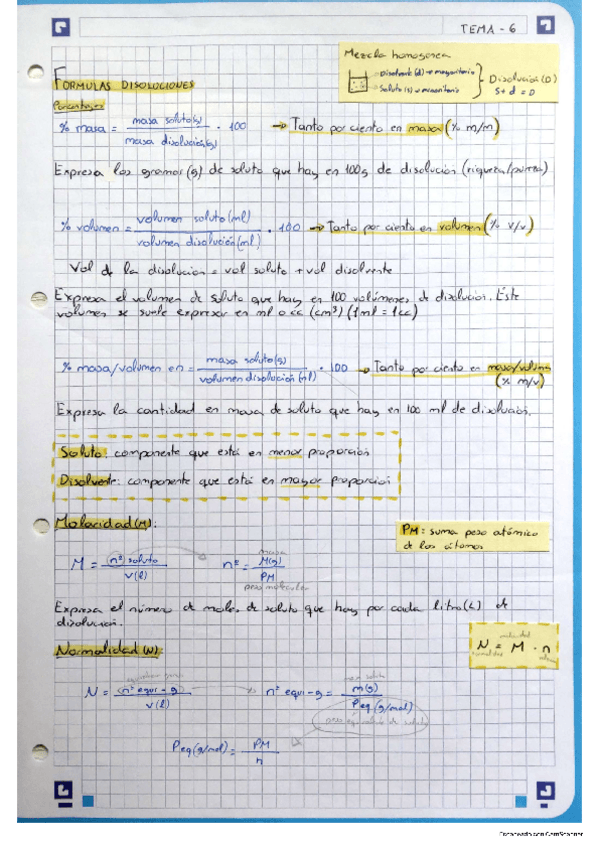 TEMA - 6
Mezcla homogenea
Disolvente (d) → mayoritario
Soluto (s) → minoritario
Disolución (D)
s + d = D
FORMULAS DISOLUCIONES
Porcentajes
% masa = masa soluto (g) / masa disolución (g) · 100 → Tanto por ciento en masa (% m/m)
Expresa los gramos (g) de soluto que hay en 100g de disolución (riqueza/pureza)
% volumen = volumen soluto (ml) / volumen disolución (ml) · 100 → Tanto por ciento en volumen (% v/v)
Vol de la disolucion = vol soluto + vol disolvente
Expresa el volumen de soluto que hay en 100 volúmenes de disolucion. Este
volumen se suele expresar en ml o cc (cm³) (1ml = 1cc)
% masa/volumen en = masa soluto (g) / volumen disolución (ml) · 100 → Tanto por ciento en masa/volumen
(% m/v)
Expresa la cantidad en masa de soluto que hay en 100 ml de disolución.
Soluto: componente que está en menor proporción
Disolvente: componente que está en mayor proporción
Molaridad (M):
PM: suma peso atómico
de los átomos
M = nº soluto / v (l)
masa
nº = M(g) / PM
peso molecular
Expresa el número de moles de soluto que hay por cada litro (L) de
disolución.
Normalidad (N):
N = M · n
N = nº equi - g / v (l)
nº equi - g = m(g) / Peq (g/mol)
Peq (g/mol) = PM / n
Escaneado con CamScanner